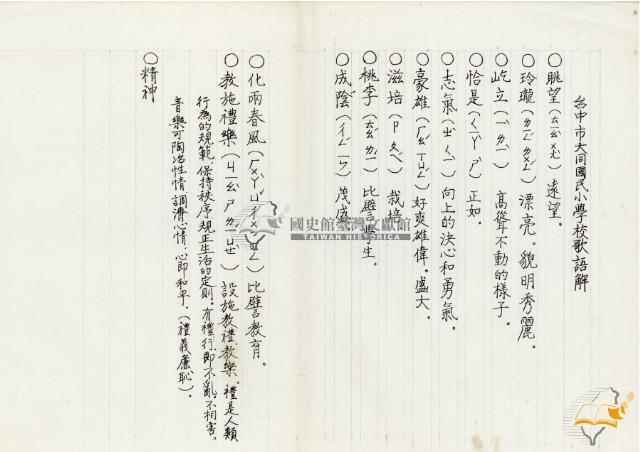 台中市大同國民小學校歌語解
○眺望（ㄊㄧㄠ ㄨㄤ）遠望。
○玲瓏（ㄌㄧㄥ ㄌㄨㄥ）漂亮。貌明秀麗。
○屹立（ㄧ ㄌㄧ）高聳不動的樣子。
○恰是（ㄑㄧㄚ ㄕ）正如。
○志氣（ㄓ ㄑㄧ）向上的決心和勇氣。
○豪雄（ㄏㄠ ㄒㄩㄥ）好爽雄偉。盛大。
○滋培（ㄗ ㄆㄟ）栽培
○桃李（ㄊㄠ ㄌㄧ）比譬學生。
○成蔭（ㄔㄥ ㄧㄣ）茂盛
○化雨春風（ㄏㄨㄚ ㄩ ㄔㄨㄣ ㄈㄥ）比譬教育。
○教施禮樂（ㄐㄧㄠ ㄕ ㄌㄧ ㄩㄝ）設施教禮教樂。禮是人類
行為的規範，保持秩序規正生活的定則。有禮行，即不亂，不相害，
音樂可陶冶性情調濟心情，心即和平，（禮義廉恥）。
○精神
國史館臺灣文獻館
TAIWAN HISTORICA